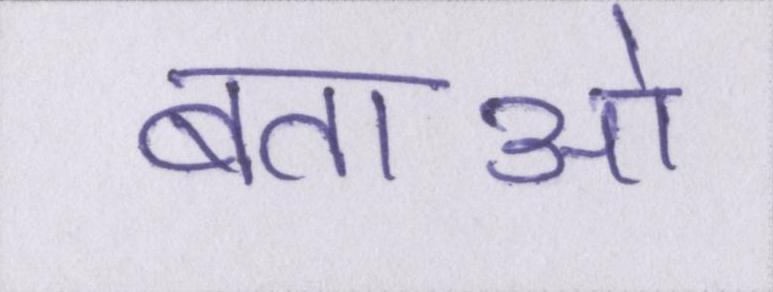 बताओ